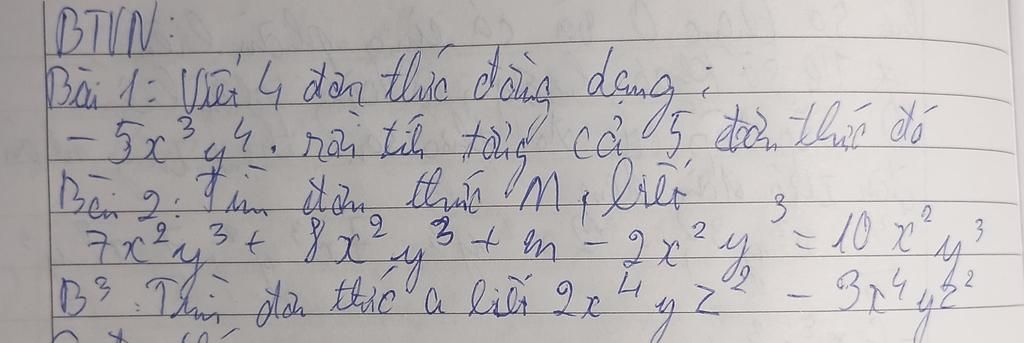 BTVN:
Bài 1: Viết 4 đơn thức đồng dạng:
- 5x³y⁴. rồi tính tổng cả 5 đơn thức đó
Bài 2: Tìm đơn thức M, biết
7x²y³ + 8x²y³ + m - 2x²y³ = 10x²y³
B3: Tìm đơn thức a biết 2x⁴yz² - 3x⁴yz²